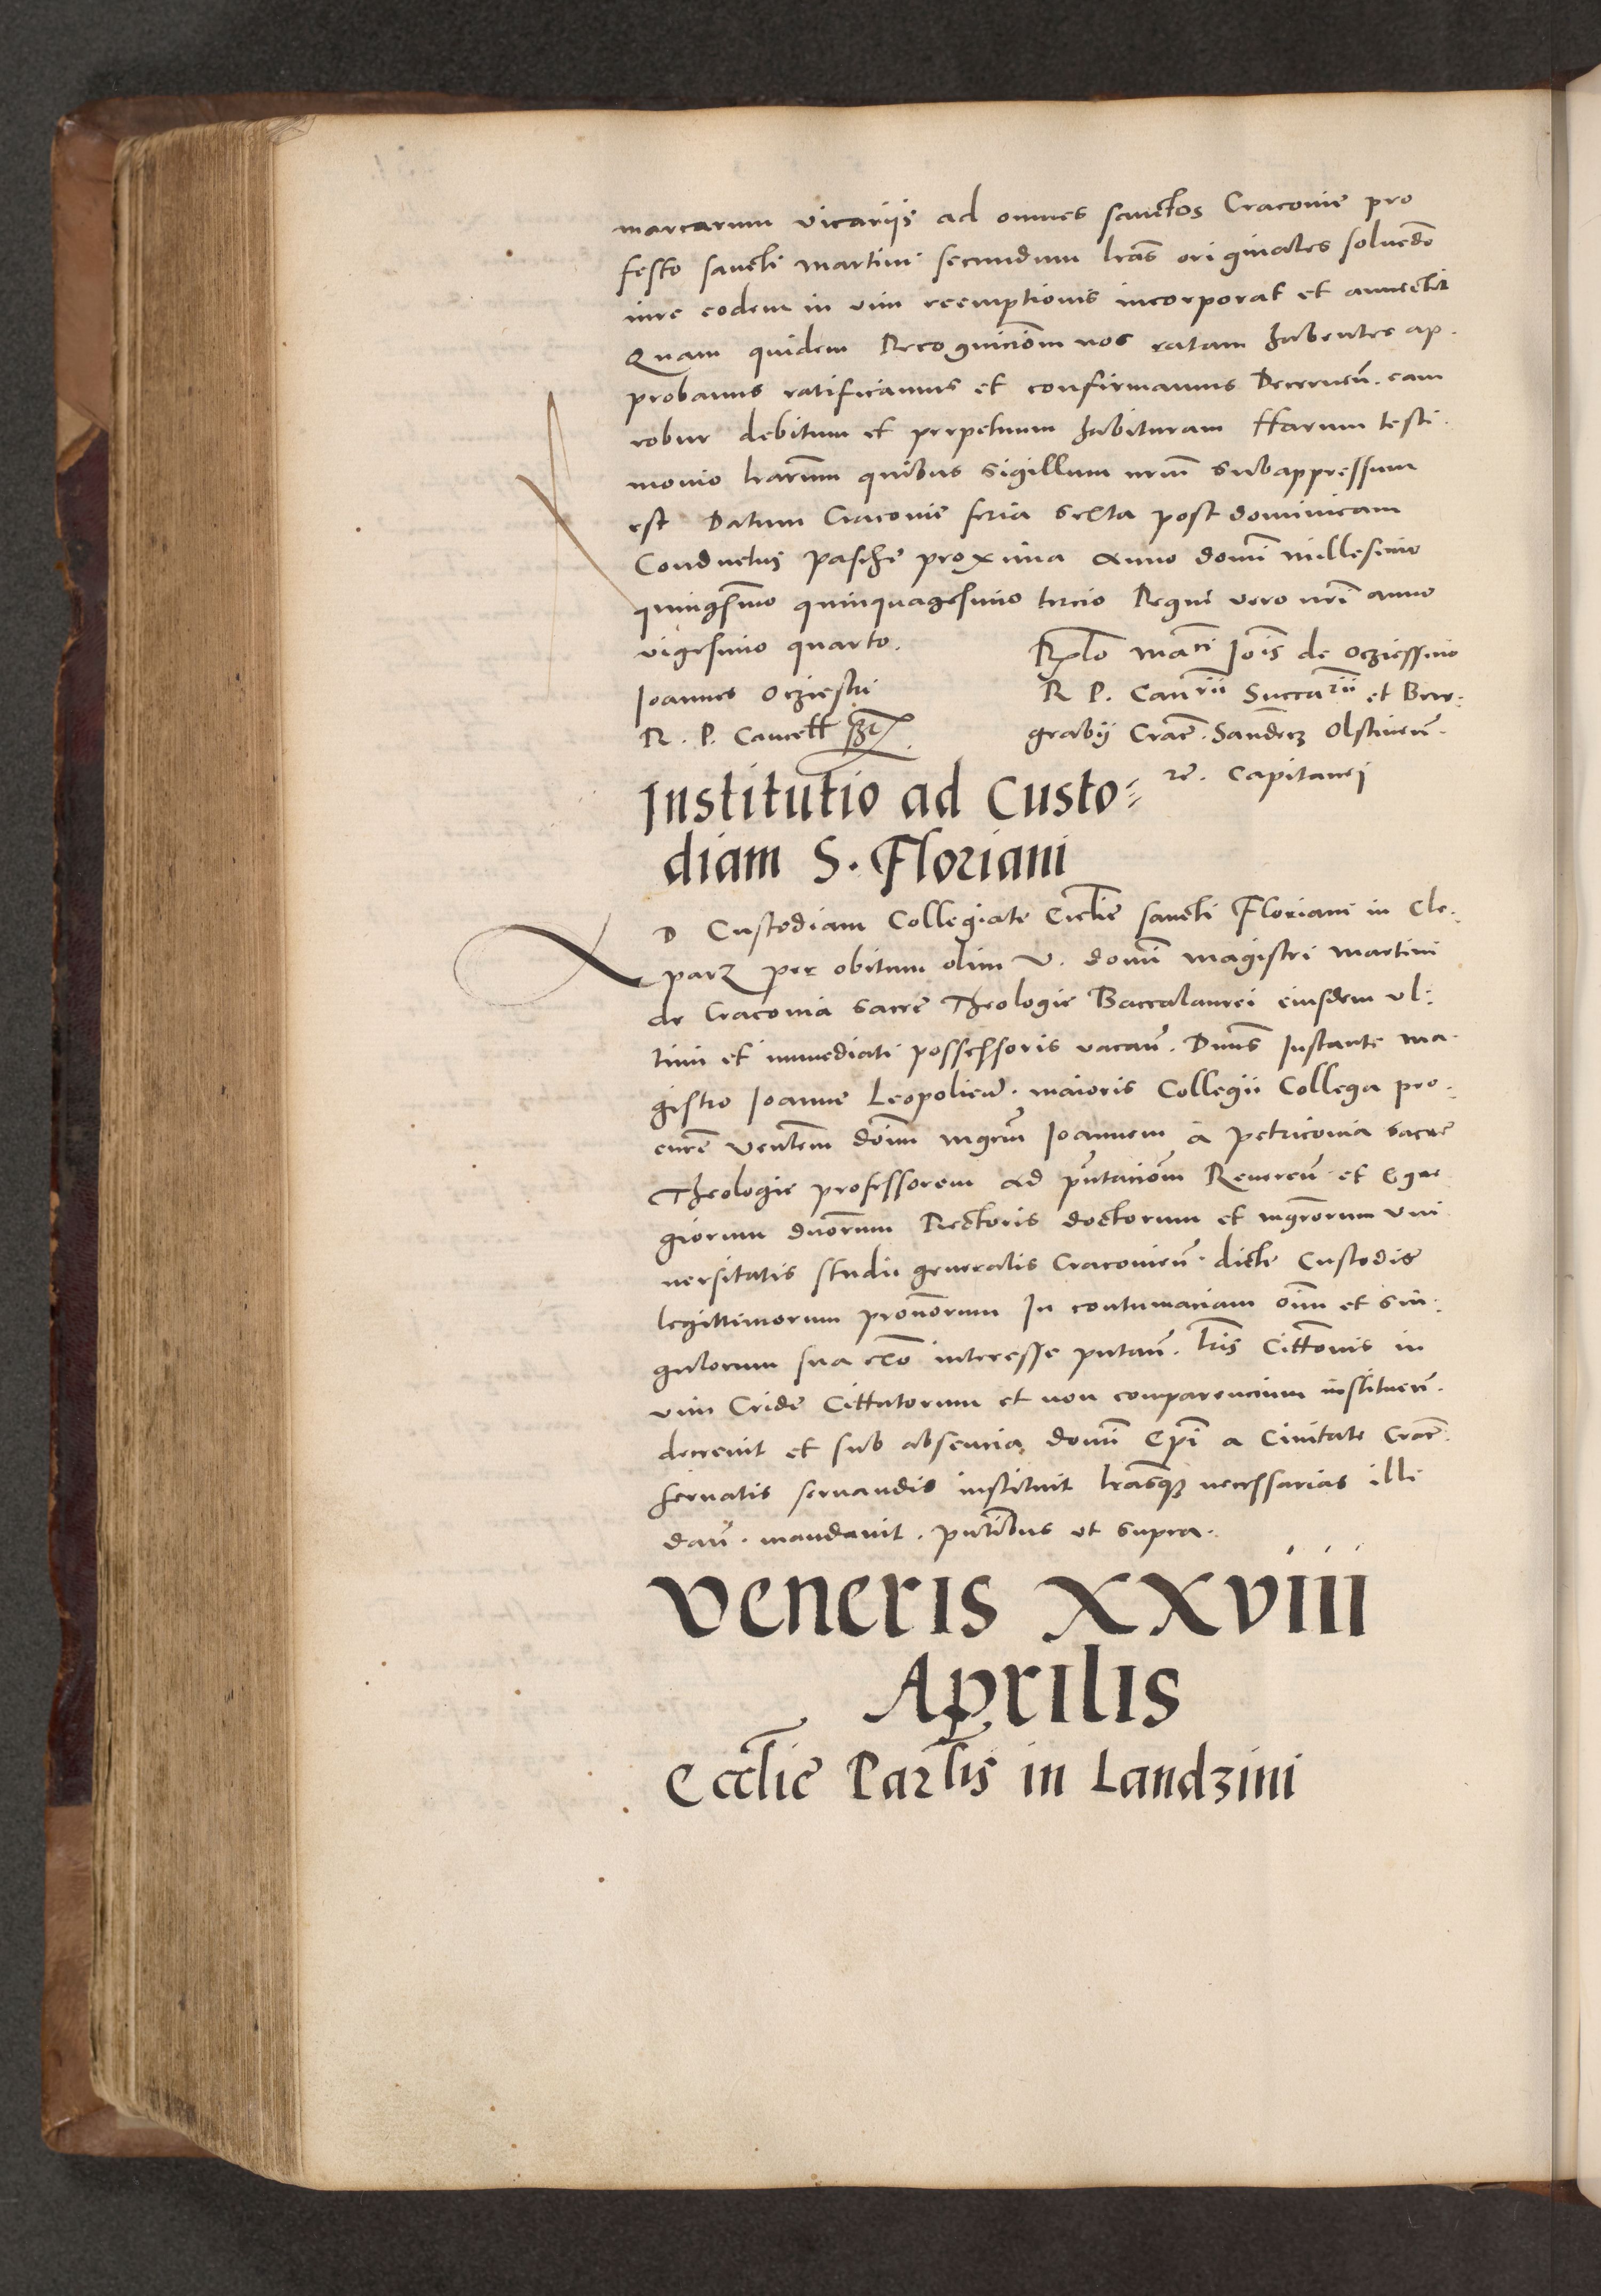 marcarum vicariis ad omnes sanctos Cracovie pro
festo sancti martini secundum lras̄ originales soluendo
iure eodem in vim reemptionis incorporat et annectit
Quam quidem Recognicionm̄ nos ratam habentes ap-
probamus ratificamus et confirmamus Decernen̄. eam
robur debitum et perpetuum habituram Harum testi-
monio lrarūm quibus sigillum nrūm subappressum
est Datum Cracovie feria sexta post dominicam
Conductus Pasche proxima Anno domī millesimo
quingsīmo quinquagesimo tercio Regni vero nrī anno
vigesimo quarto.
Joannes Oczieski
R. P. Cancell sst
Rlō Maci Jois̄ de Ocziessino
R P. Canrii Succarii et Bur-
grabij Crac̄. Sandecz̄ Olstinen̄.
re. Capitanej
Institutio ad Custo-
diam S. Floriani
D Custodiam Collegiate Ecclīe sancti Floriani in Cle-
parz per obitum olim V. domī magistri Martini
de Cracovia sacre Theologie Baccalaurei eiusdem vl-
timi et immediati possessoris vacan̄. Dnūs Instante ma-
gistro Joanne Leopolien̄. maioris Collegii Collega pro-
cure Ventem̄ donūm mgrūm Joannem a Petricovia sacre
Theologie professorem Ad pn̄tacionm̄ Reueren̄. et Egre
giorum dnōrum Rectoris doctorum et mgrōrum Vni
uersitatis studii generalis Cracovien̄. dicte Custodie
legittimorum pronōrum In contumaciam oīm et sin-
gulorum sua exō interesse putan̄. lrīs Cittōnis in
vim Cride Cittatorum et non comparencium instituen̄.
decreuit et sub absencia domī Epī a Ciuitate Crac̄.
seruatis seruandis instituit lrasq̄ necessarias illi
dan̄. mandauit. pn̄tibus vt supra.
Veneris XXviii
Aprilis
Ecclīe Parlis̄ in Landzini